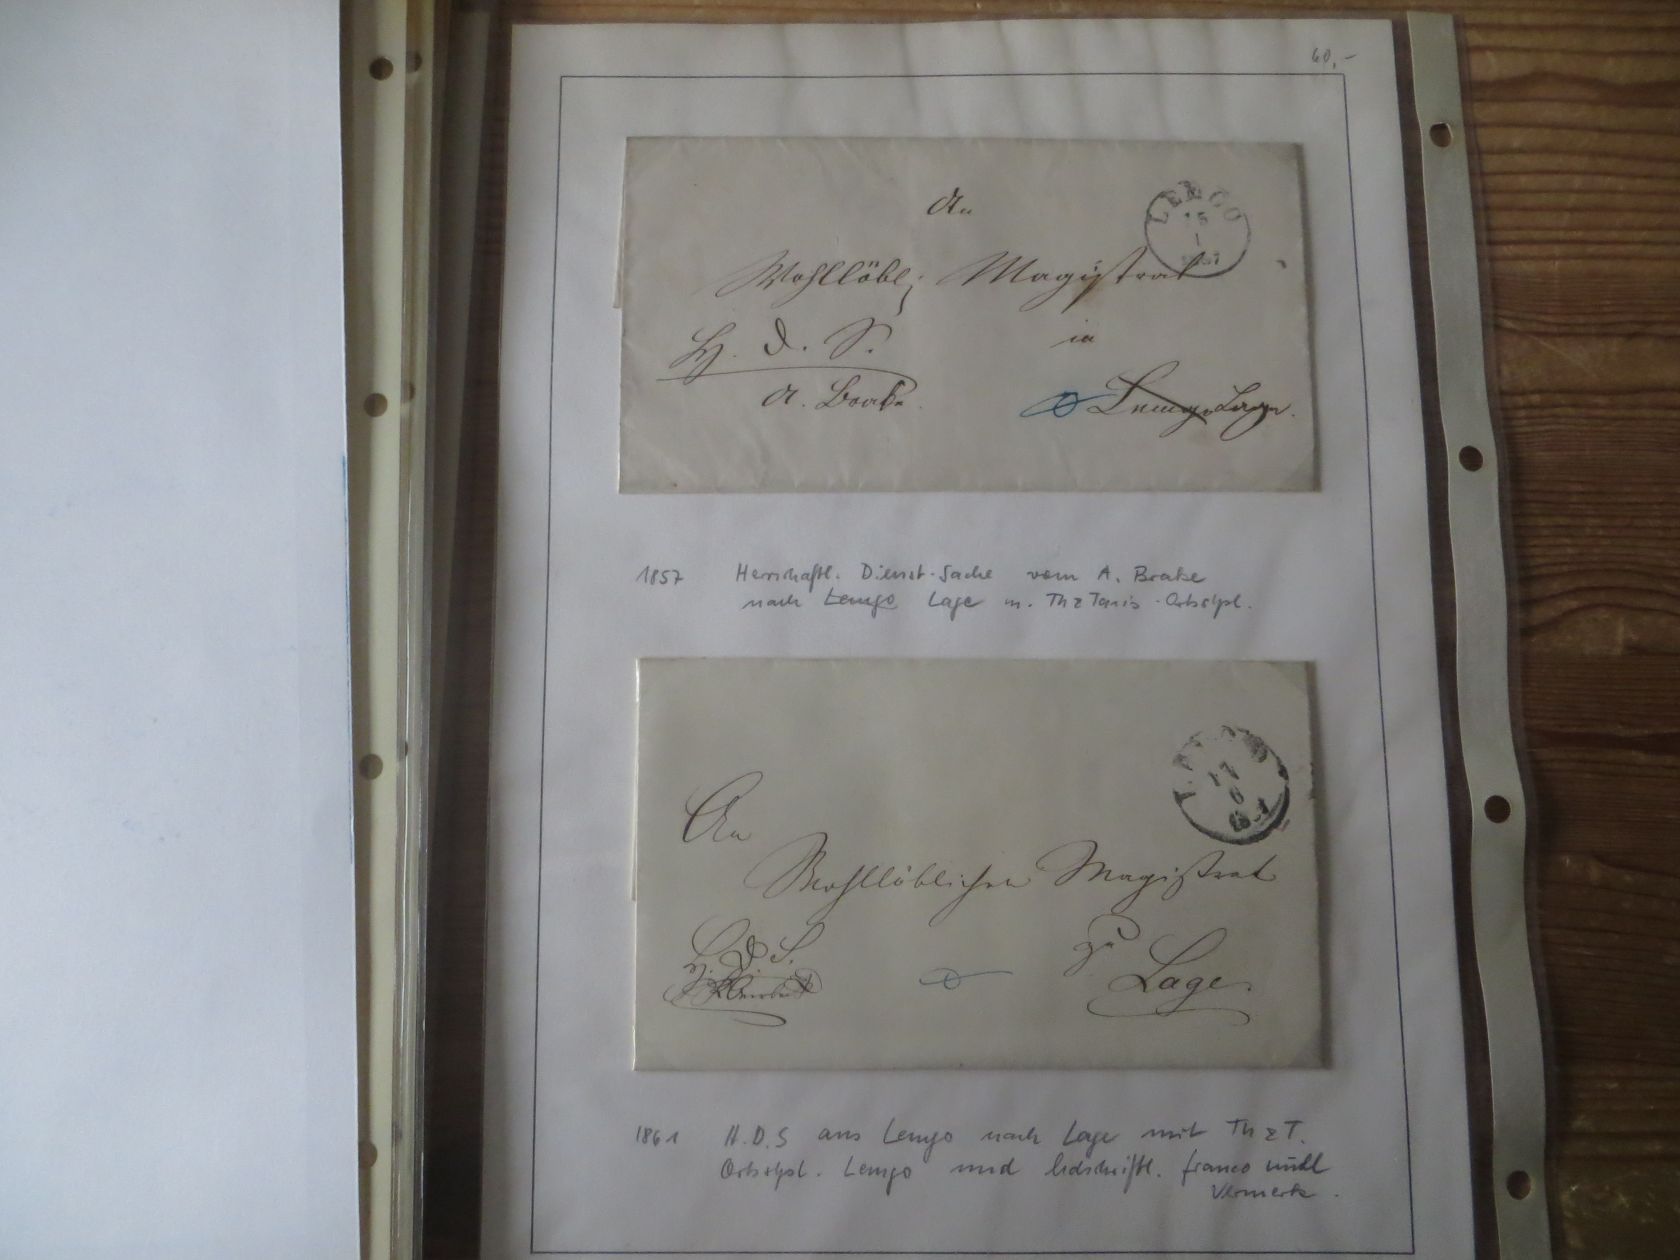 60,-
An
LEMGO
15
1
Wohllöbl; Magistrat
H. D. S.
in
A. Brake
Lemgo Lage.
1857 Herrschaftl. Dienst-Sache vom A. Brake
nach Lemgo Lage m. Th & Taxis-Ortsstpl.
17
6
An
Wohllöblichen Magistrat
H. D. S.
zu
Lage.
1861 H.D.S aus Lemgo nach Lage mit Th & T.
Ortsstpl. Lemgo und hdschriftl. franco
Vermerk.